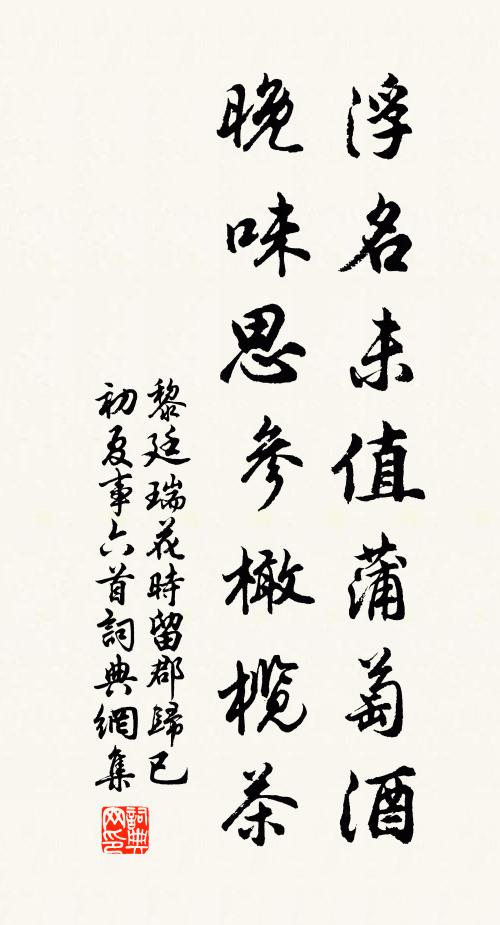 浮名未值蒲萄酒
晚味思參橄榄茶
黎廷瑞花時留郡歸已
初夏事六首詞典網集
詞典网印